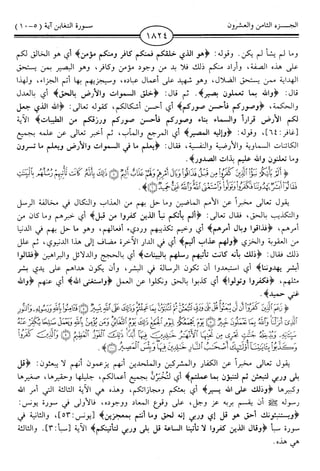 الجـــزء الثامن والعشرون
١٨٢٤
سورة التغابن آية (٥-١٠)
وما لم يشأ لم يكن. وقوله: ﴿هو الذي خلقكم فمنكم كافر ومنكم مؤمن﴾ أي هو الخالق لكم
على هذه الصفة، وأراد منكم ذلك فلا بد من وجود مؤمن وكافر، وهو البصير بمن يستحق
الهداية ممن يستحق الضلال، وهو شهيد على أعمال عباده، وسيجزيهم بها أتم الجزاء، ولهذا
قال: ﴿والله بما تعملون بصير﴾. ثم قال: ﴿خلق السموات والأرض بالحق﴾ أي بالعدل
والحكمة، ﴿وصوركم فأحسن صوركم﴾ أي أحسن أشكالكم، كقوله تعالى: ﴿الله الذي جعل
لكم الأرض قراراً والسماء بناء وصوركم فأحسن صوركم ورزقكم من الطيبات﴾ الآية
[غافر: ٦٤]، وقوله: ﴿وإليه المصير﴾ أي المرجع والمآب، ثم أخبر تعالى عن علمه بجميع
الكائنات السماوية والأرضية والنفسية، فقال: ﴿يعلم ما في السموات والأرض ويعلم ما تسرون
وما تعلنون والله عليم بذات الصدور﴾.
﴿أَلَمْ يَأْتِكُمْ نَبَؤُا۟ الَّذِينَ كَفَرُوا۟ مِن قَبْلُ فَذَاقُوا۟ وَبَالَ أَمْرِهِمْ وَلَهُمْ عَذَابٌ أَلِيمٌ ۝ ذَٰلِكَ بِأَنَّهُۥ كَانَت تَّأْتِيهِمْ رُسُلُهُم بِالْبَيِّنَٰتِ
فَقَالُوٓا۟ أَبَشَرٌ يَهْدُونَنَا فَكَفَرُوا۟ وَتَوَلَّوا۟ وَّاسْتَغْنَى اللَّهُ وَاللَّهُ غَنِىٌّ حَمِيدٌ ۝﴾
يقول تعالى مخبراً عن الأمم الماضين وما حل بهم من العذاب والنكال في مخالفة الرسل
والتكذيب بالحق، فقال تعالى: ﴿ألم يأتكم نبأ الذين كفروا من قبل﴾ أي خبرهم وما كان من
أمرهم، ﴿فذاقوا وبال أمرهم﴾ أي وخيم تكذيبهم ورديء أفعالهم، وهو ما حل بهم في الدنيا
من العقوبة والخزي ﴿ولهم عذاب أليم﴾ أي في الدار الآخرة مضاف إلى هذا الدنيوي، ثم علل
ذلك فقال: ﴿ذلك بأنه كانت تأتيهم رسلهم بالبينات﴾ أي بالحجج والدلائل والبراهين ﴿فقالوا
أبشر يهدوننا﴾ أي استبعدوا أن تكون الرسالة في البشر، وأن يكون هداهم على يدي بشر
مثلهم، ﴿فكفروا وتولوا﴾ أي كذبوا بالحق ونكلوا عن العمل ﴿واستغنى الله﴾ أي عنهم ﴿والله
غني حميد﴾.
﴿زَعَمَ الَّذِينَ كَفَرُوٓا۟ أَن لَّن يُبْعَثُوا۟ قُلْ بَلَىٰ وَرَبِّى لَتُبْعَثُنَّ ثُمَّ لَتُنَبَّؤُنَّ بِمَا عَمِلْتُمْ وَذَٰلِكَ عَلَى اللَّهِ يَسِيرٌ ۝ فَـَٔامِنُوا۟ بِاللَّهِ وَرَسُولِهِۦ وَالنُّورِ
يقول تعالى مخبراً عن الكفار والمشركين والملحدين أنهم يزعمون أنهم لا يبعثون: ﴿قل
بلى وربي لتبعثن ثم لتنبؤن بما عملتم﴾ أي لتُخبَرُنَّ بجميع أعمالكم، جليلها وحقيرها، صغيرها
وكبيرها ﴿وذلك على الله يسير﴾ أي بعثكم ومجازاتكم، وهذه هي الآية الثالثة التي أمر الله
رسوله ﷺ أن يقسم بربه عز وجل، على وقوع المعاد ووجوده، فالأولى في سورة يونس:
﴿ويستنبؤنك أحق هو قل إي وربي إنه لحق وما أنتم بمعجزين﴾ [يونس: ٥٣]، والثانية في
سورة سبأ ﴿وقال الذين كفروا لا تأتينا الساعة قل بلى وربي لتأتينكم﴾ الآية [سبأ: ٣]. والثالثة
هي هذه.